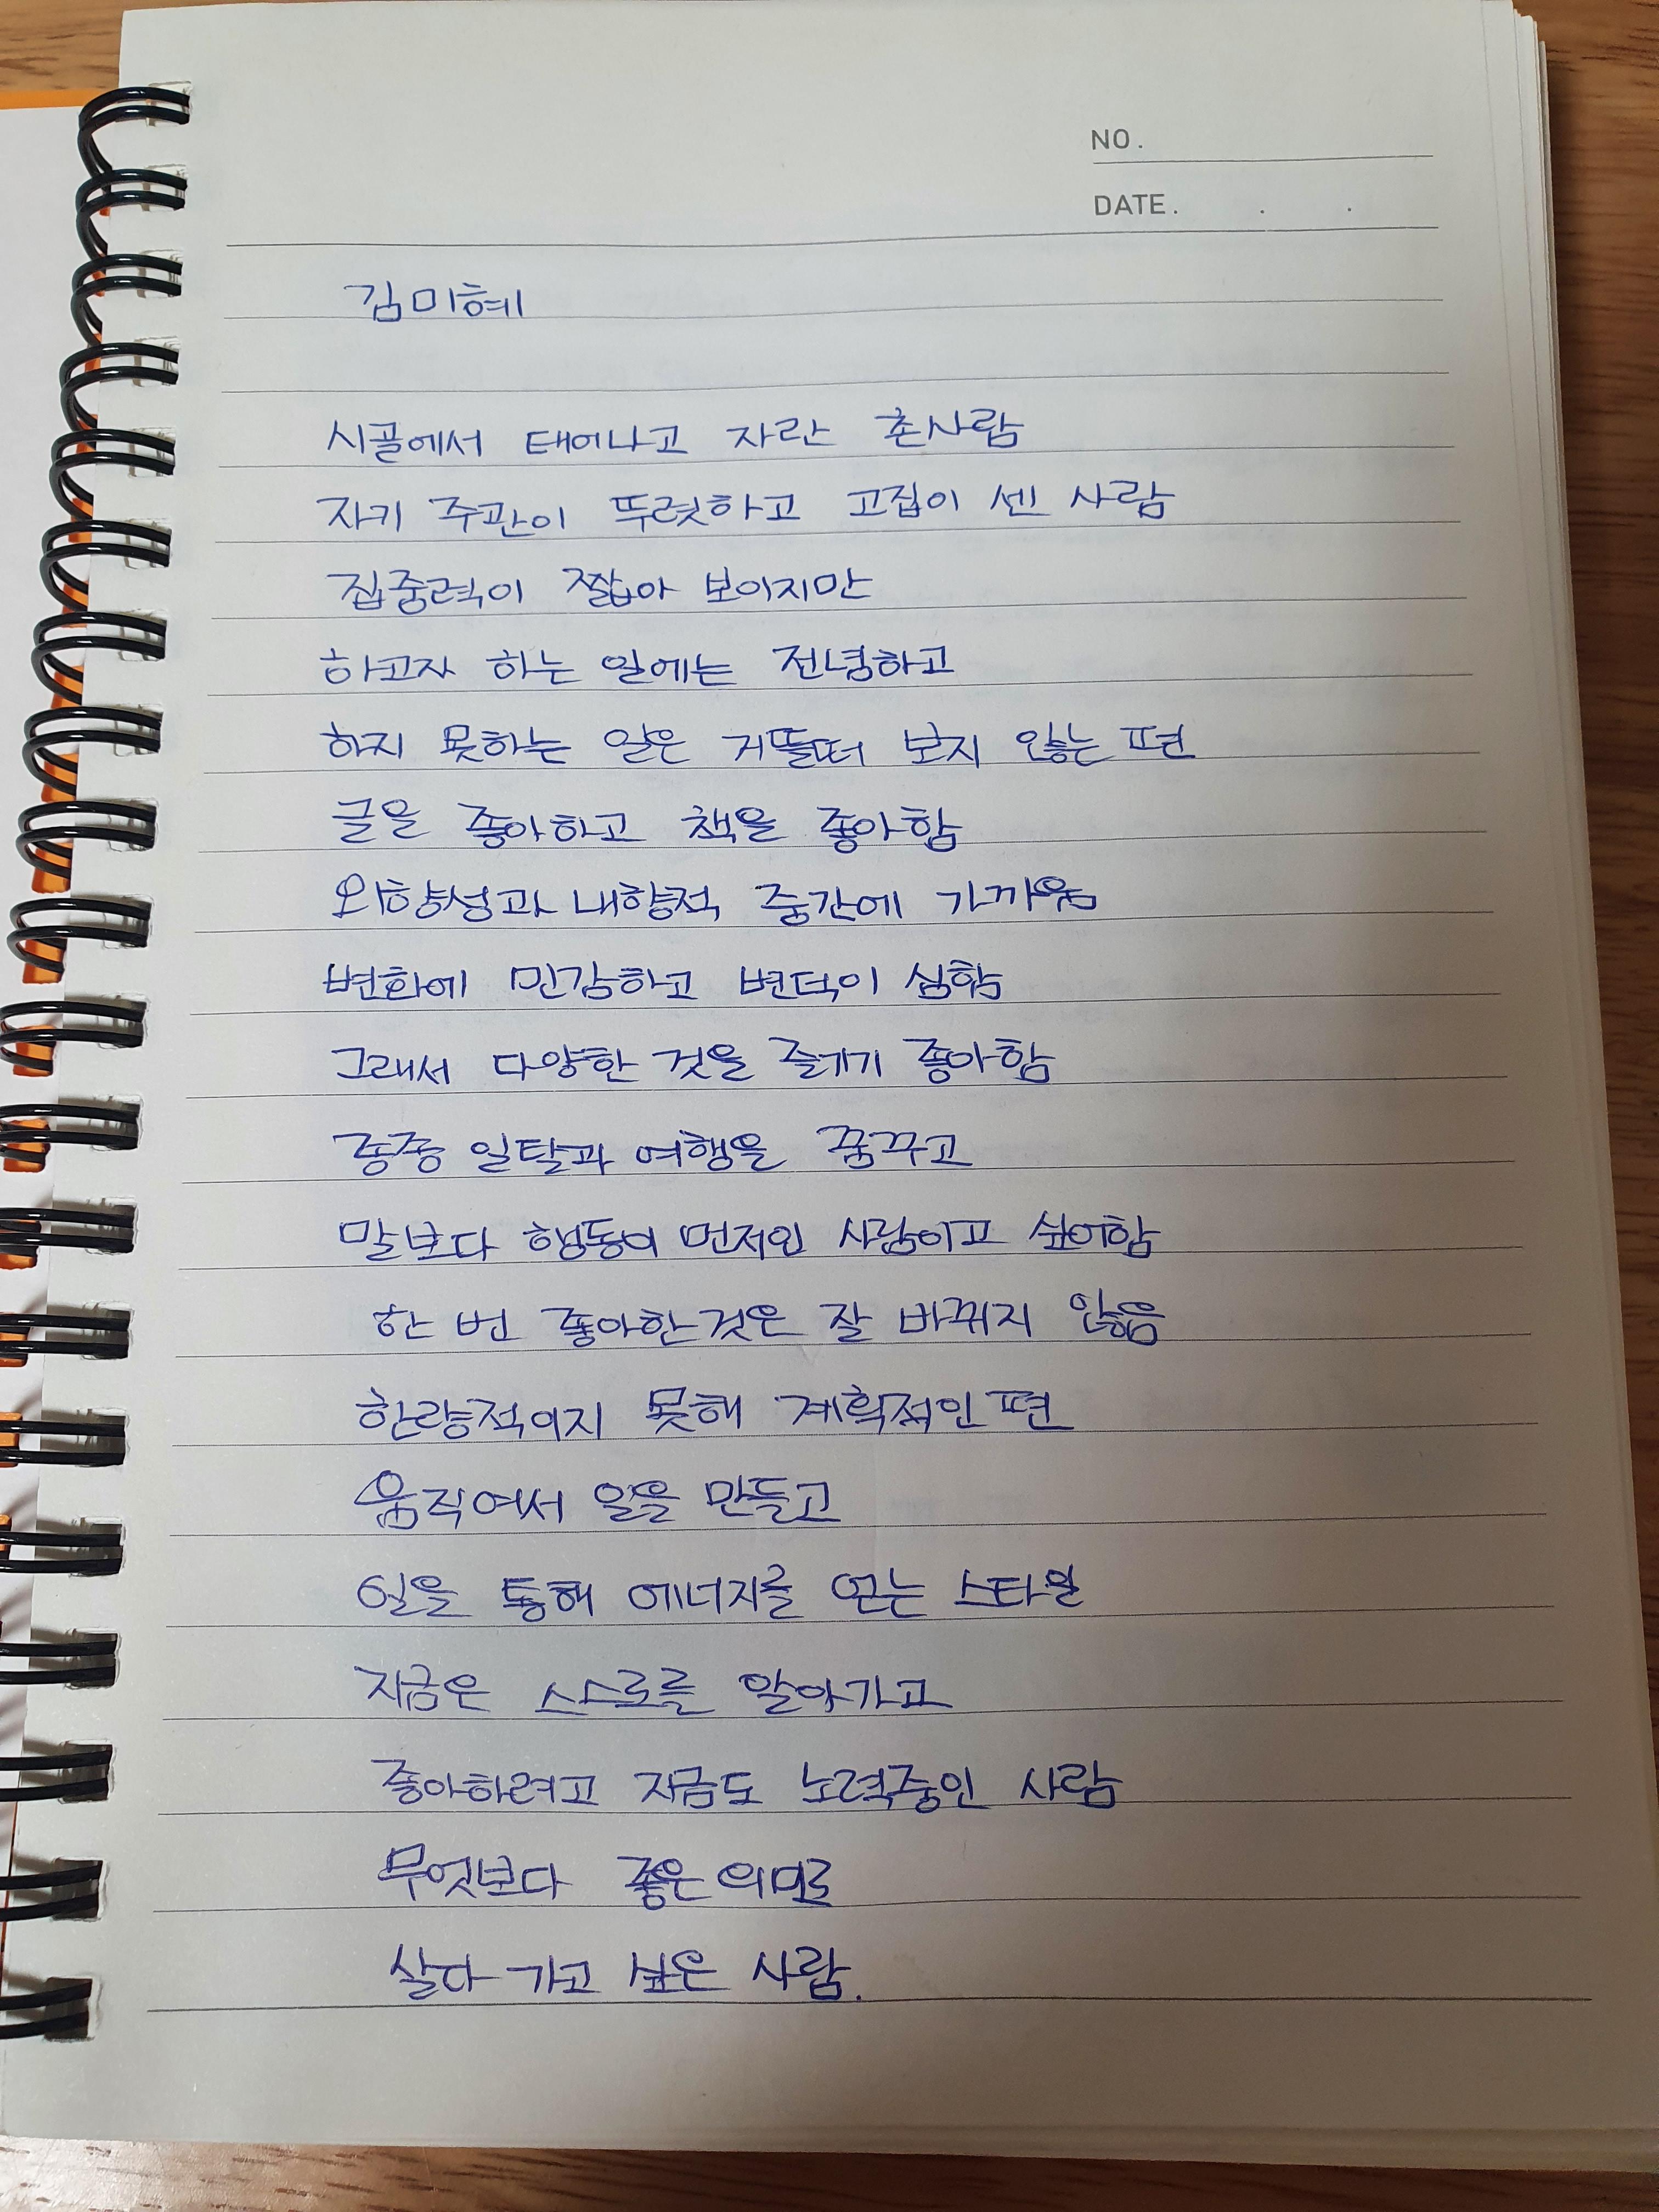 NO.
DATE. . .
김미혜
시골에서 태어나고 자란 촌사람
자기 주관이 뚜렷하고 고집이 센 사람
집중력이 짧아 보이지만
하고자 하는 일에는 전념하고
하지 못하는 일은 거들떠 보지 않는 편
글을 좋아하고 책을 좋아함
외향성과 내향적 중간에 가까움
변화에 민감하고 변덕이 심함
그래서 다양한 것을 즐기기 좋아함
종종 일탈과 여행을 꿈꾸고
말보다 행동이 먼저인 사람이고 싶어함
한 번 좋아한것은 잘 바뀌지 않음
한량적이지 못해 계획적인 편
움직여서 일을 만들고
일을 통해 에너지를 얻는 스타일
지금은 스스로를 알아가고
좋아하려고 지금도 노력중인 사람
무엇보다 좋은 의미로
살다 가고 싶은 사람.